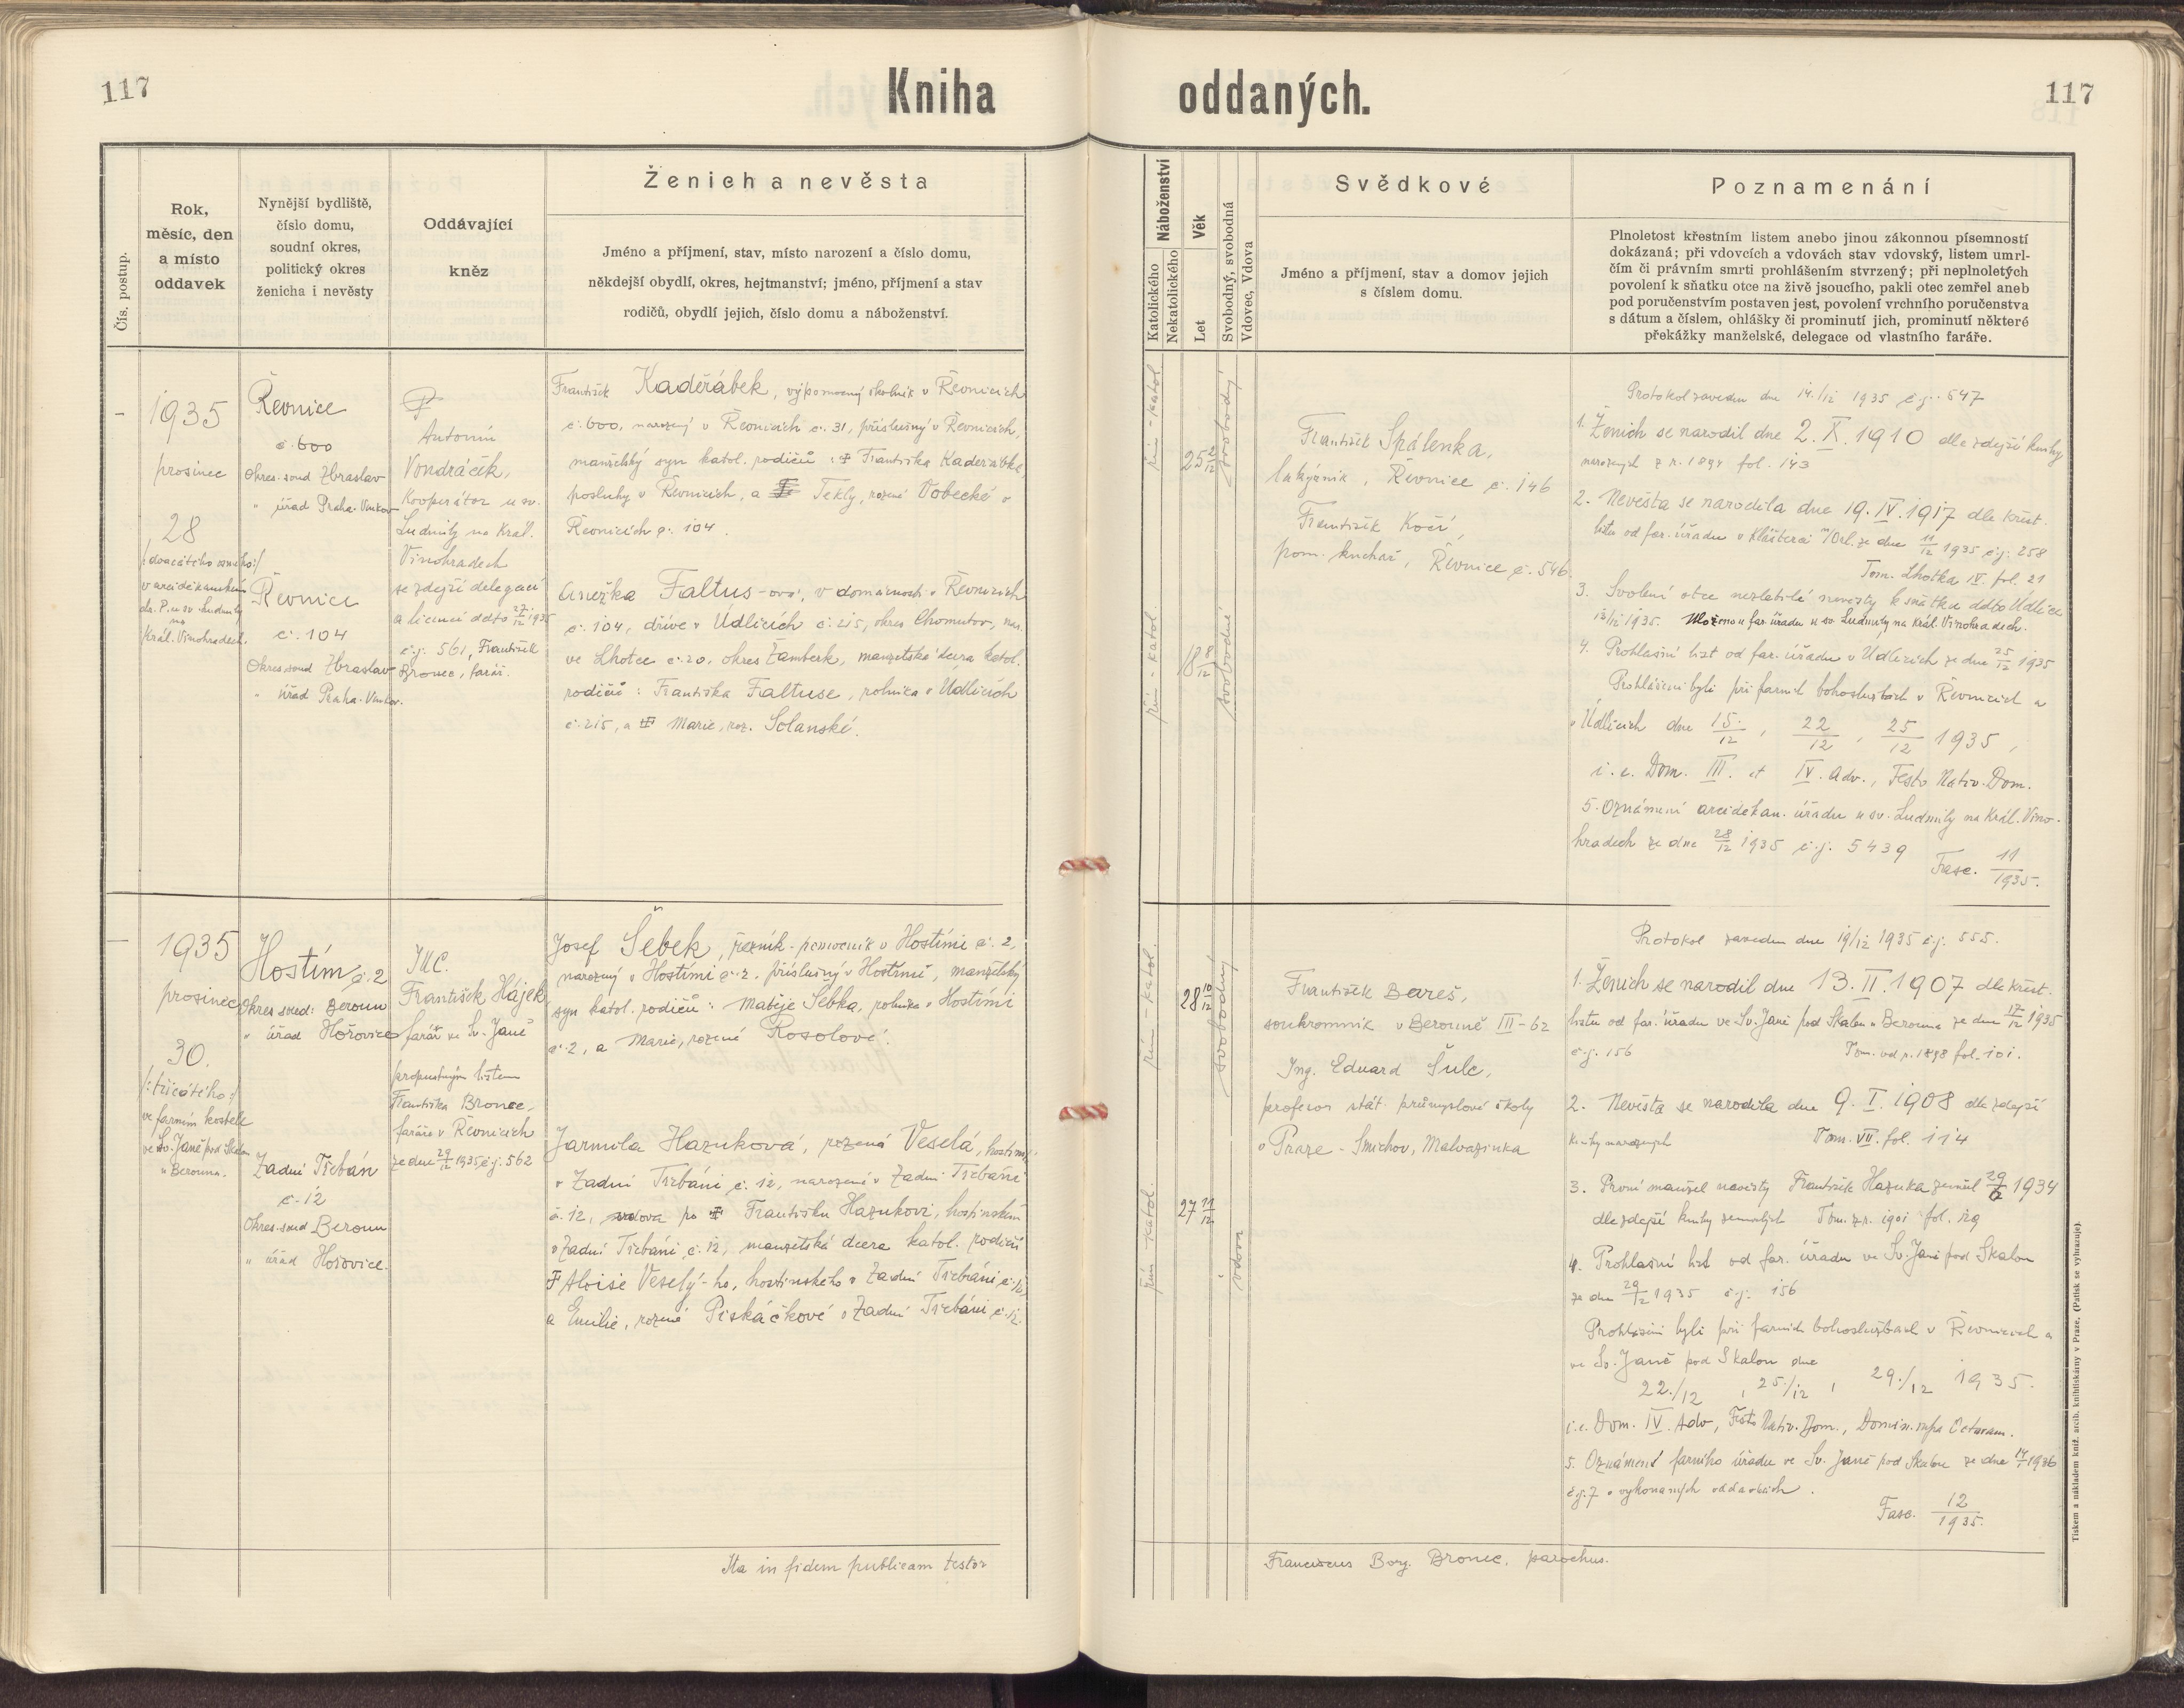 117
Kniha oddaných.
117
Čís. postup.
Rok,
měsíc, den
a místo
oddavek
Nynější bydliště,
číslo domu,
soudní okres,
politický okres
ženicha i nevěsty
Oddávající
kněz
Ženich a nevěsta
Jméno a příjmení, stav, místo narození a číslo domu,
někdejší obydlí, okres, hejtmanství; jméno, příjmení a stav
rodičů, obydlí jejich, číslo domu a náboženství.
Náboženství
Katolického
Nekatolického
Věk
Let
Svobodný, svobodná
Vdovec, Vdova
Svědkové
Jméno a příjmení, stav a domov jejich
s číslem domu.
Poznamenání
Plnoletost křestním listem anebo jinou zákonnou písemností
dokázaná; při vdovcích a vdovách stav vdovský, listem umrl-
čím či právním smrti prohlášením stvrzený; při neplnoletých
povolení k sňatku otce na živě jsoucího, pakli otec zemřel aneb
pod poručenstvím postaven jest, povolení vrchního poručenstva
s dátum a číslem, ohlášky či prominutí jich, prominutí některé
překážky manželské, delegace od vlastního faráře.
1935
prosinec
28
v arciděkanském
chr. P. u sv. Ludmily
na
Král. Vinohradech.
Řevnice
č. 600
Okres. soud Zbraslav
" úřad Praha-Venkov
Řevnice
č. 104
Okres. soud Zbraslav
" úřad Praha-Venkov.
P
Antonín
Vondráček,
Kooperátor u sv.
Ludmily na Král.
Vinohradech
se zdejší delegací
a licencí ddto 27/12 1935
č.j. 561, František
Bronec, farář.
František Kadeřábek, výpomocný školník v Řevnicích
č. 600, narozený v Řevnicích č. 31, příslušný v Řevnicích,
manželský syn katol. rodičů : † Františka Kadeřábka,
posluhy v Řevnicích, a Tekly, rozené Vobecké v
Řevnicích č. 104.
Anežka Faltus-ová, v domácnosti v Řevnicích
č. 104, dříve v Údlicích č. 215, okres Chomutov, nar.
ve Lhotce č. 20, okres Žamberk, manželská dcera katol.
rodičů : Františka Faltuse, rolníka v Údlicích
č. 215, a † Marie, roz. Solanské.
řím-katol.
25 2/12
svobodný
řím-katol.
18 8/12
svobodná
František Spálenka,
lakýrník, Řevnice č. 146
František Kočí,
pom. kuchař, Řevnice č. 546.
Protokol zaveden dne 14./12 1935 č.j. 547
1. Ženich se narodil dne 2. X. 1910 dle zdejší knihy
narozených z r. 1894 fol. 143
2. Nevěsta se narodila dne 19. IV. 1917 dle křest.
listu od far. úřadu v Klášterci n/Orl. ze dne 11/12 1935 č.j. 258
Tom. Lhotka IV. fol. 21
3. Svolení otce nezletilé nevěsty k sňatku ddto Údlice
13/12 1935. Uloženo u far. úřadu u sv. Ludmily na Král. Vinohradech.
4. Prohlašní list od far. úřadu v Údlicích ze dne 25/12 1935
Prohlášeni byli při farních bohoslužbách v Řevnicích a
v Údlicích dne 15./12, 22/12, 25/12 1935,
i. e. Dom. III. et IV. Adv., Festo Nativ. Dom.
5. Oznámení arciděkan. úřadu u sv. Ludmily na Král. Vino-
hradech ze dne 28/12 1935 č.j. 5439
Fasc. 11/1935.
1935
prosinec
30.
/:třicátého:/
ve farním kostele
ve Sv. Janě pod Skalou
u Berouna.
Hostím č. 2
Okres soud: Beroun
" úřad Hořovice
Zadní Třebáň
č. 12
Okres. soud Beroun
" úřad Hořovice.
JUC.
František Hájek
farář ve Sv. Janě
propustným listem
Františka Bronce,
faráře v Řevnicích
ze dne 29/12 1935 č.j. 562
Josef Šebek, řezník-pomocník v Hostími č. 2,
narozený v Hostími č. 2, příslušný v Hostími, manželský
syn katol. rodičů : Matěje Šebka, rolníka v Hostími
č. 2, a Marie, rozené Rosolové.
Jarmila Hazuková, rozená Veselá,
v Zadní Třebáni č. 12, narozená v Zadní Třebáni
č. 12, vdova po † Františku Hazukovi, hostinském
v Zadní Třebáni č. 12, manželská dcera katol. rodičů
† Aloise Veselý-ho, hostinského v Zadní Třebáni č. 12,
a Emilie, rozené Piskáčkové v Zadní Třebáni č. 12.
řím-katol.
28 10/12
svobodný
řím-katol.
27 11/12
vdova
František Bareš,
soukromník v Berouně III-62
Ing. Eduard Šulc,
profesor stát. průmyslové školy
v Praze-Smíchov, Malvazinka
Protokol zaveden dne 19/12 1935 č.j. 555.
1. Ženich se narodil dne 13. II. 1907 dle křest.
listu od far. úřadu ve Sv. Janě pod Skalou u Berouna ze dne 17/12 1935
č.j. 156 Tom. od r. 1898 fol. 101.
2. Nevěsta se narodila dne 9. I. 1908 dle zdejší
knihy narozených Tom. VII. fol. 114
3. První manžel nevěsty František Hazuka zemřel 1934
dle zdejší knihy zemřelých Tom. z r. 1901 fol. 129
4. Prohlašní list od far. úřadu ve Sv. Janě pod Skalou
ze dne 29/12 1935 č.j. 156
Prohlášeni byli při farních bohoslužbách v Řevnicích a
ve Sv. Janě pod Skalou dne
22./12, 25./12, 29./12 1935.
i. e. Dom. IV. Adv., Festo Nativ. Dom., Domin. infra Octavam.
5. Oznámení farního úřadu ve Sv. Janě pod Skalou ze dne 1936
č.j. 7 o vykonaných oddavkách.
Fasc. 12/1935.
Ita in fidem publicam testor
Franciscus Borg. Bronec, parochus.
Tiskem a nákladem kníž. arcib. knihtiskárny v Praze. (Patisk se vyhrazuje).